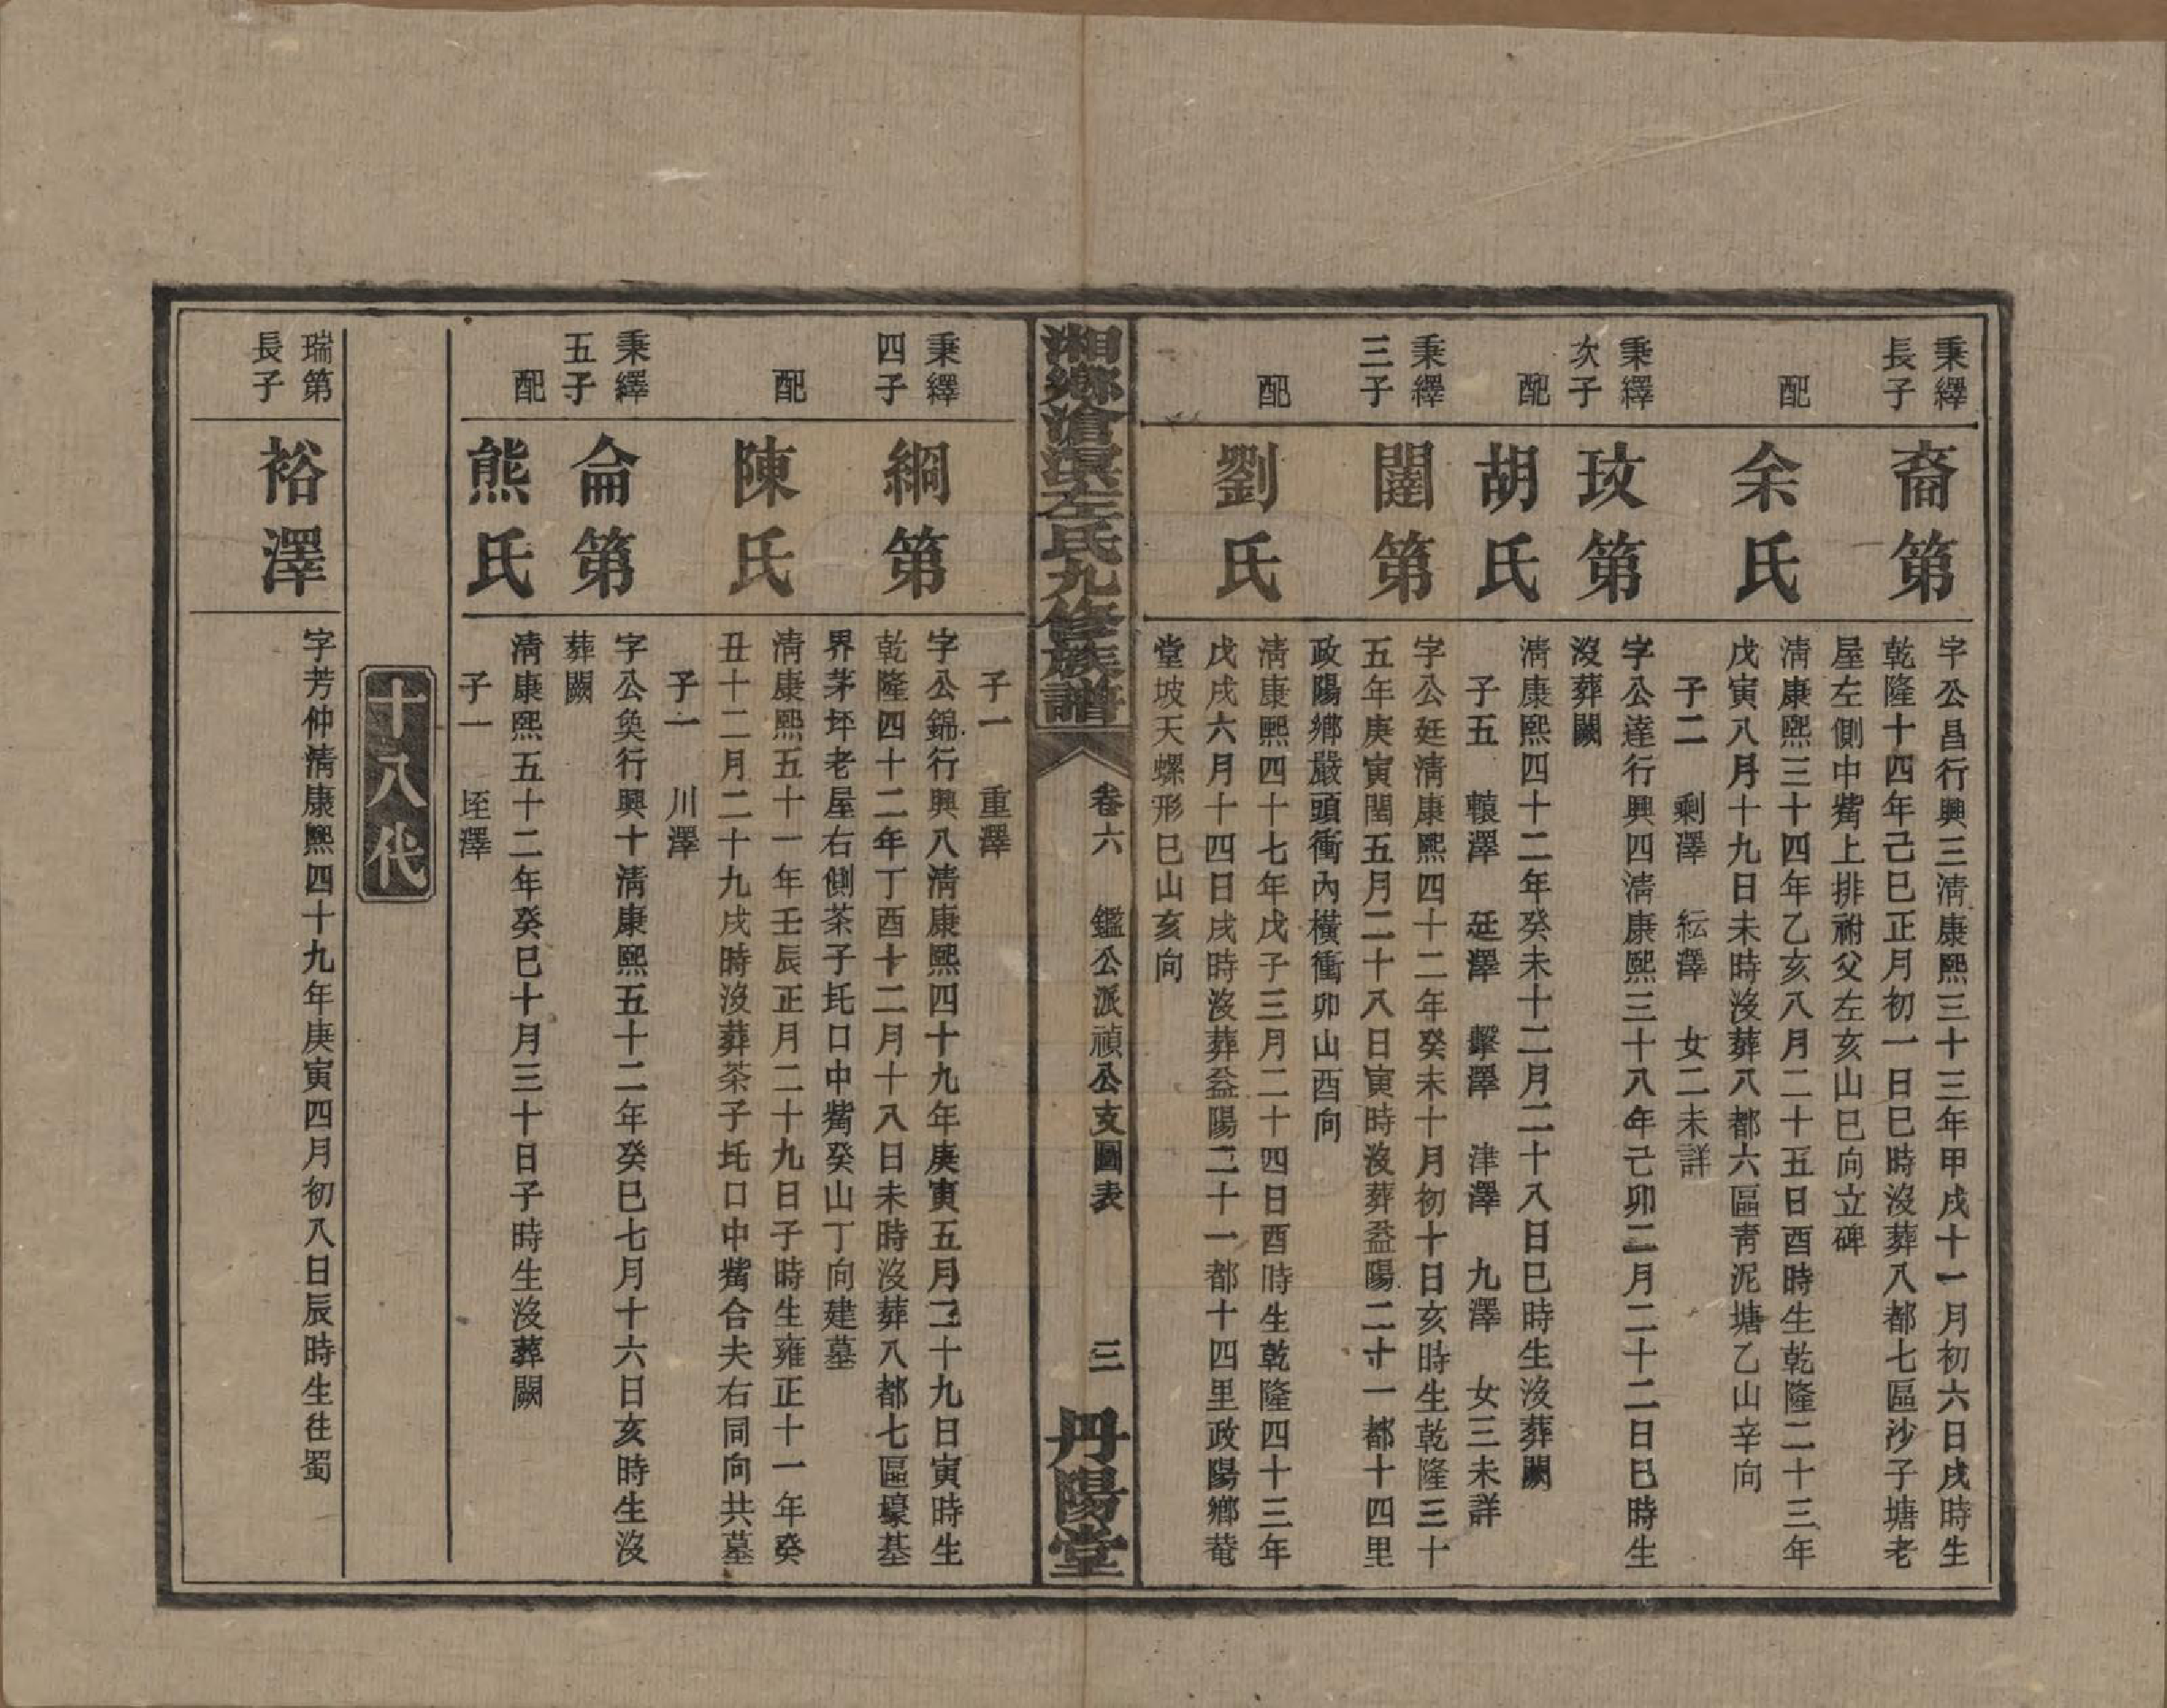 秉繹
長子
裔第
字公昌行興三淸康熙三十三年甲戌十一月初六日戌時生
乾隆十四年己巳正月初一日巳時沒葬八都七區沙子塘老
屋左側中觜上排祔父左亥山巳向立碑
配
余氏
淸康熙三十四年乙亥八月二十五日酉時生乾隆二十三年
戊寅八月十九日未時沒葬八都六區靑泥塘乙山辛向
子二　剩澤　紜澤　女二未詳
秉繹
次子
玫第
字公達行興四淸康熙三十八年己卯二月二十二日巳時生
沒葬闕
配
胡氏
淸康熙四十二年癸未十二月二十八日巳時生沒葬闕
子五　轅澤　廷澤　擊澤　津澤　九澤　女三未詳
秉繹
三子
闥第
字公廷淸康熙四十二年癸未十月初十日亥時生乾隆三十
五年庚寅閏五月二十八日寅時沒葬益陽二十一都十四里
政陽鄉嚴頭衝內橫衝卯山酉向
配
劉氏
淸康熙四十七年戊子三月二十四日酉時生乾隆四十三年
戊戌六月十四日戌時沒葬益陽二十一都十四里政陽鄉菴
堂坡天螺形巳山亥向
湘鄉滄溪左氏九修族譜
卷六　鑑公派禎公支圖表
三
丹陽堂
子一　重澤
秉繹
四子
綱第
字公錦行興八淸康熙四十九年庚寅五月二十九日寅時生
乾隆四十二年丁酉十二月十八日未時沒葬八都七區壕基
界茅坪老屋右側茶子圫口中觜癸山丁向建墓
配
陳氏
淸康熙五十一年壬辰正月二十九日子時生雍正十一年癸
丑十二月二十九戌時沒葬茶子圫口中觜合夫右同向共墓
子一　川澤
秉繹
五子
侖第
字公奐行興十淸康熙五十二年癸巳七月十六日亥時生沒
葬闕
配
熊氏
淸康熙五十二年癸巳十月三十日子時生沒葬闕
子一　垤澤
十八代
瑞第
長子
裕澤
字芳仲淸康熙四十九年庚寅四月初八日辰時生往蜀